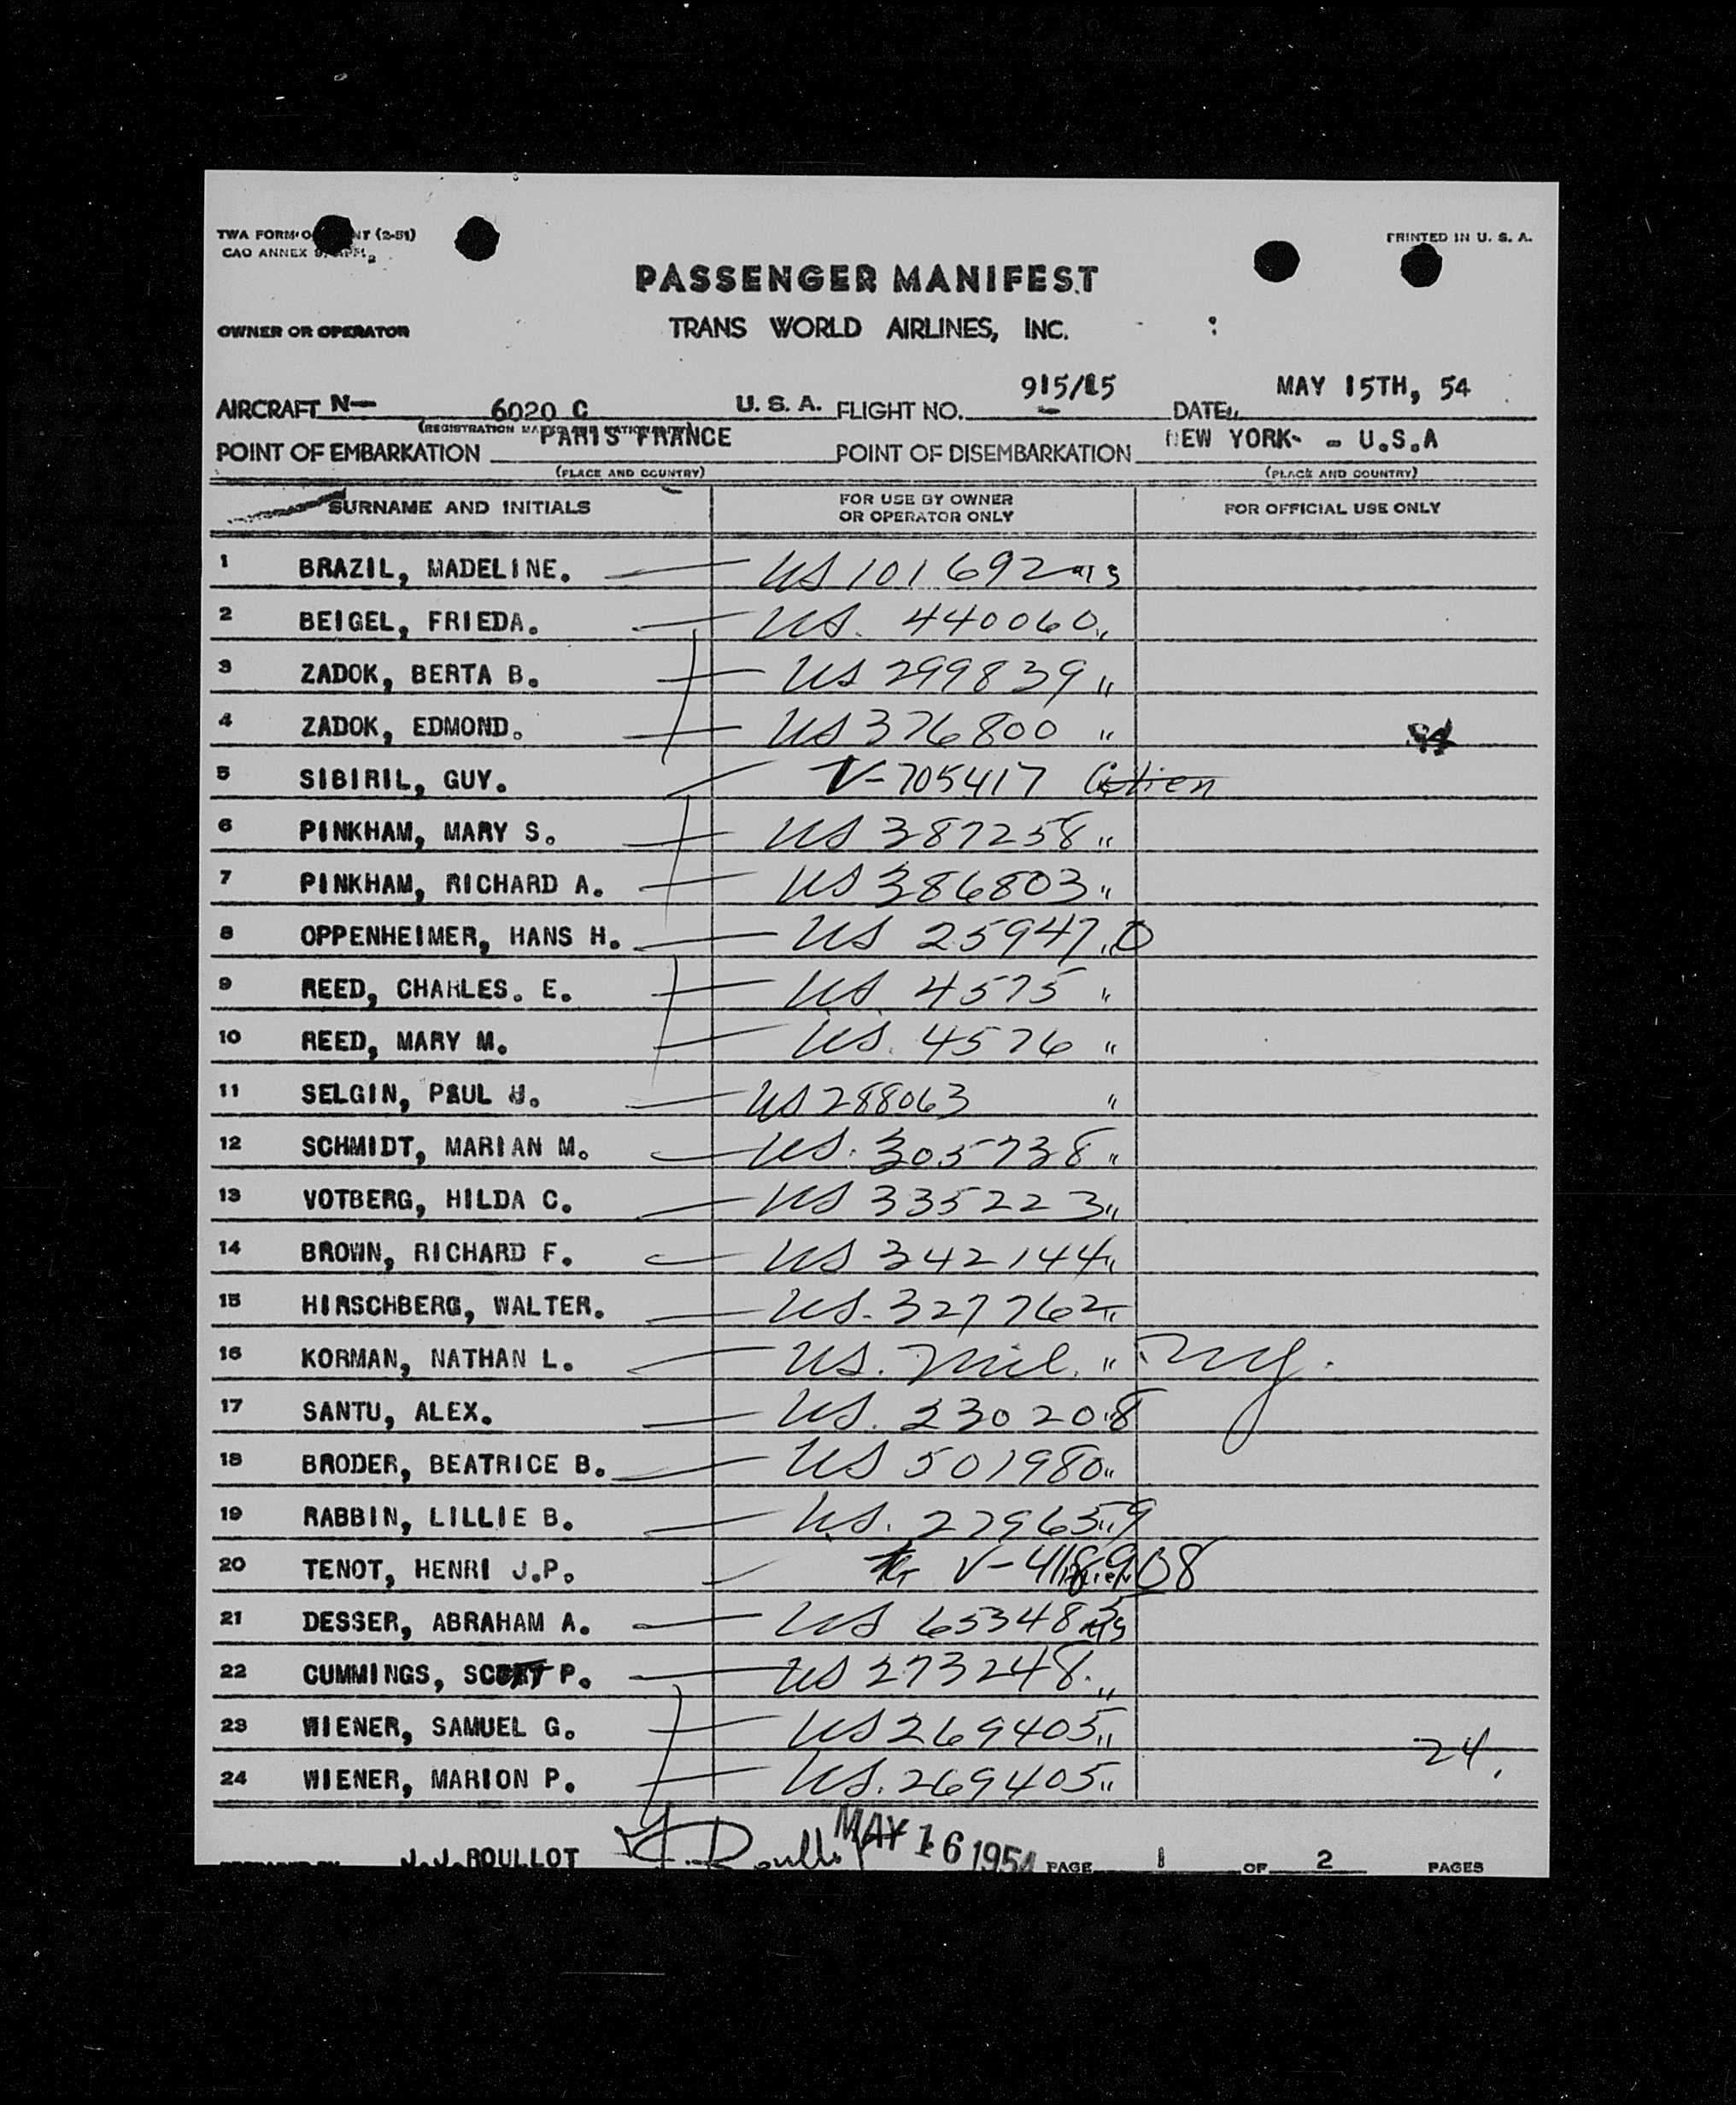 TWA FORM O NT (2-51)
CAO ANNEX 9,
PRINTED IN U. S. A.
PASSENGER MANIFEST
OWNER OR OPERATOR TRANS WORLD AIRLINES, INC.
AIRCRAFT N— 6020 C U. S. A. FLIGHT NO. 915/15 DATE MAY 15TH, 54
(REGISTRATION
POINT OF EMBARKATION PARIS FRANCE POINT OF DISEMBARKATION NEW YORK- - U.S.A
(PLACE AND COUNTRY) (PLACE AND COUNTRY)
SURNAME AND INITIALS FOR USE BY OWNER OR OPERATOR ONLY FOR OFFICIAL USE ONLY
1 BRAZIL, MADELINE. US 101692
2 BEIGEL, FRIEDA. US. 440060 "
3 ZADOK, BERTA B. US 299839 "
4 ZADOK, EDMOND. US 376800 "
5 SIBIRIL, GUY. V-705417
6 PINKHAM, MARY S. US 387258 "
7 PINKHAM, RICHARD A. US 386803 "
8 OPPENHEIMER, HANS H. US 259470
9 REED, CHARLES. E. US 4575 "
10 REED, MARY M. US. 4576 "
11 SELGIN, PAUL J. US 288063 "
12 SCHMIDT, MARIAN M. US. 305738 "
13 VOTBERG, HILDA C. US 335223 "
14 BROWN, RICHARD F. US 342144 "
15 HIRSCHBERG, WALTER. US. 327762 "
16 KORMAN, NATHAN L. US. Mil. "
17 SANTU, ALEX. US. 230208
18 BRODER, BEATRICE B. US 501980 "
19 RABBIN, LILLIE B. US. 279659
20 TENOT, HENRI J.P. V-418908
21 DESSER, ABRAHAM A. US 653485
22 CUMMINGS, SCOTT P. US 273248. "
23 WIENER, SAMUEL G. US 269405 "
24 WIENER, MARION P. US. 269405 "
24.
J.J.ROULLOT J. Roullot MAY 16 1954 PAGE 1 OF 2 PAGES